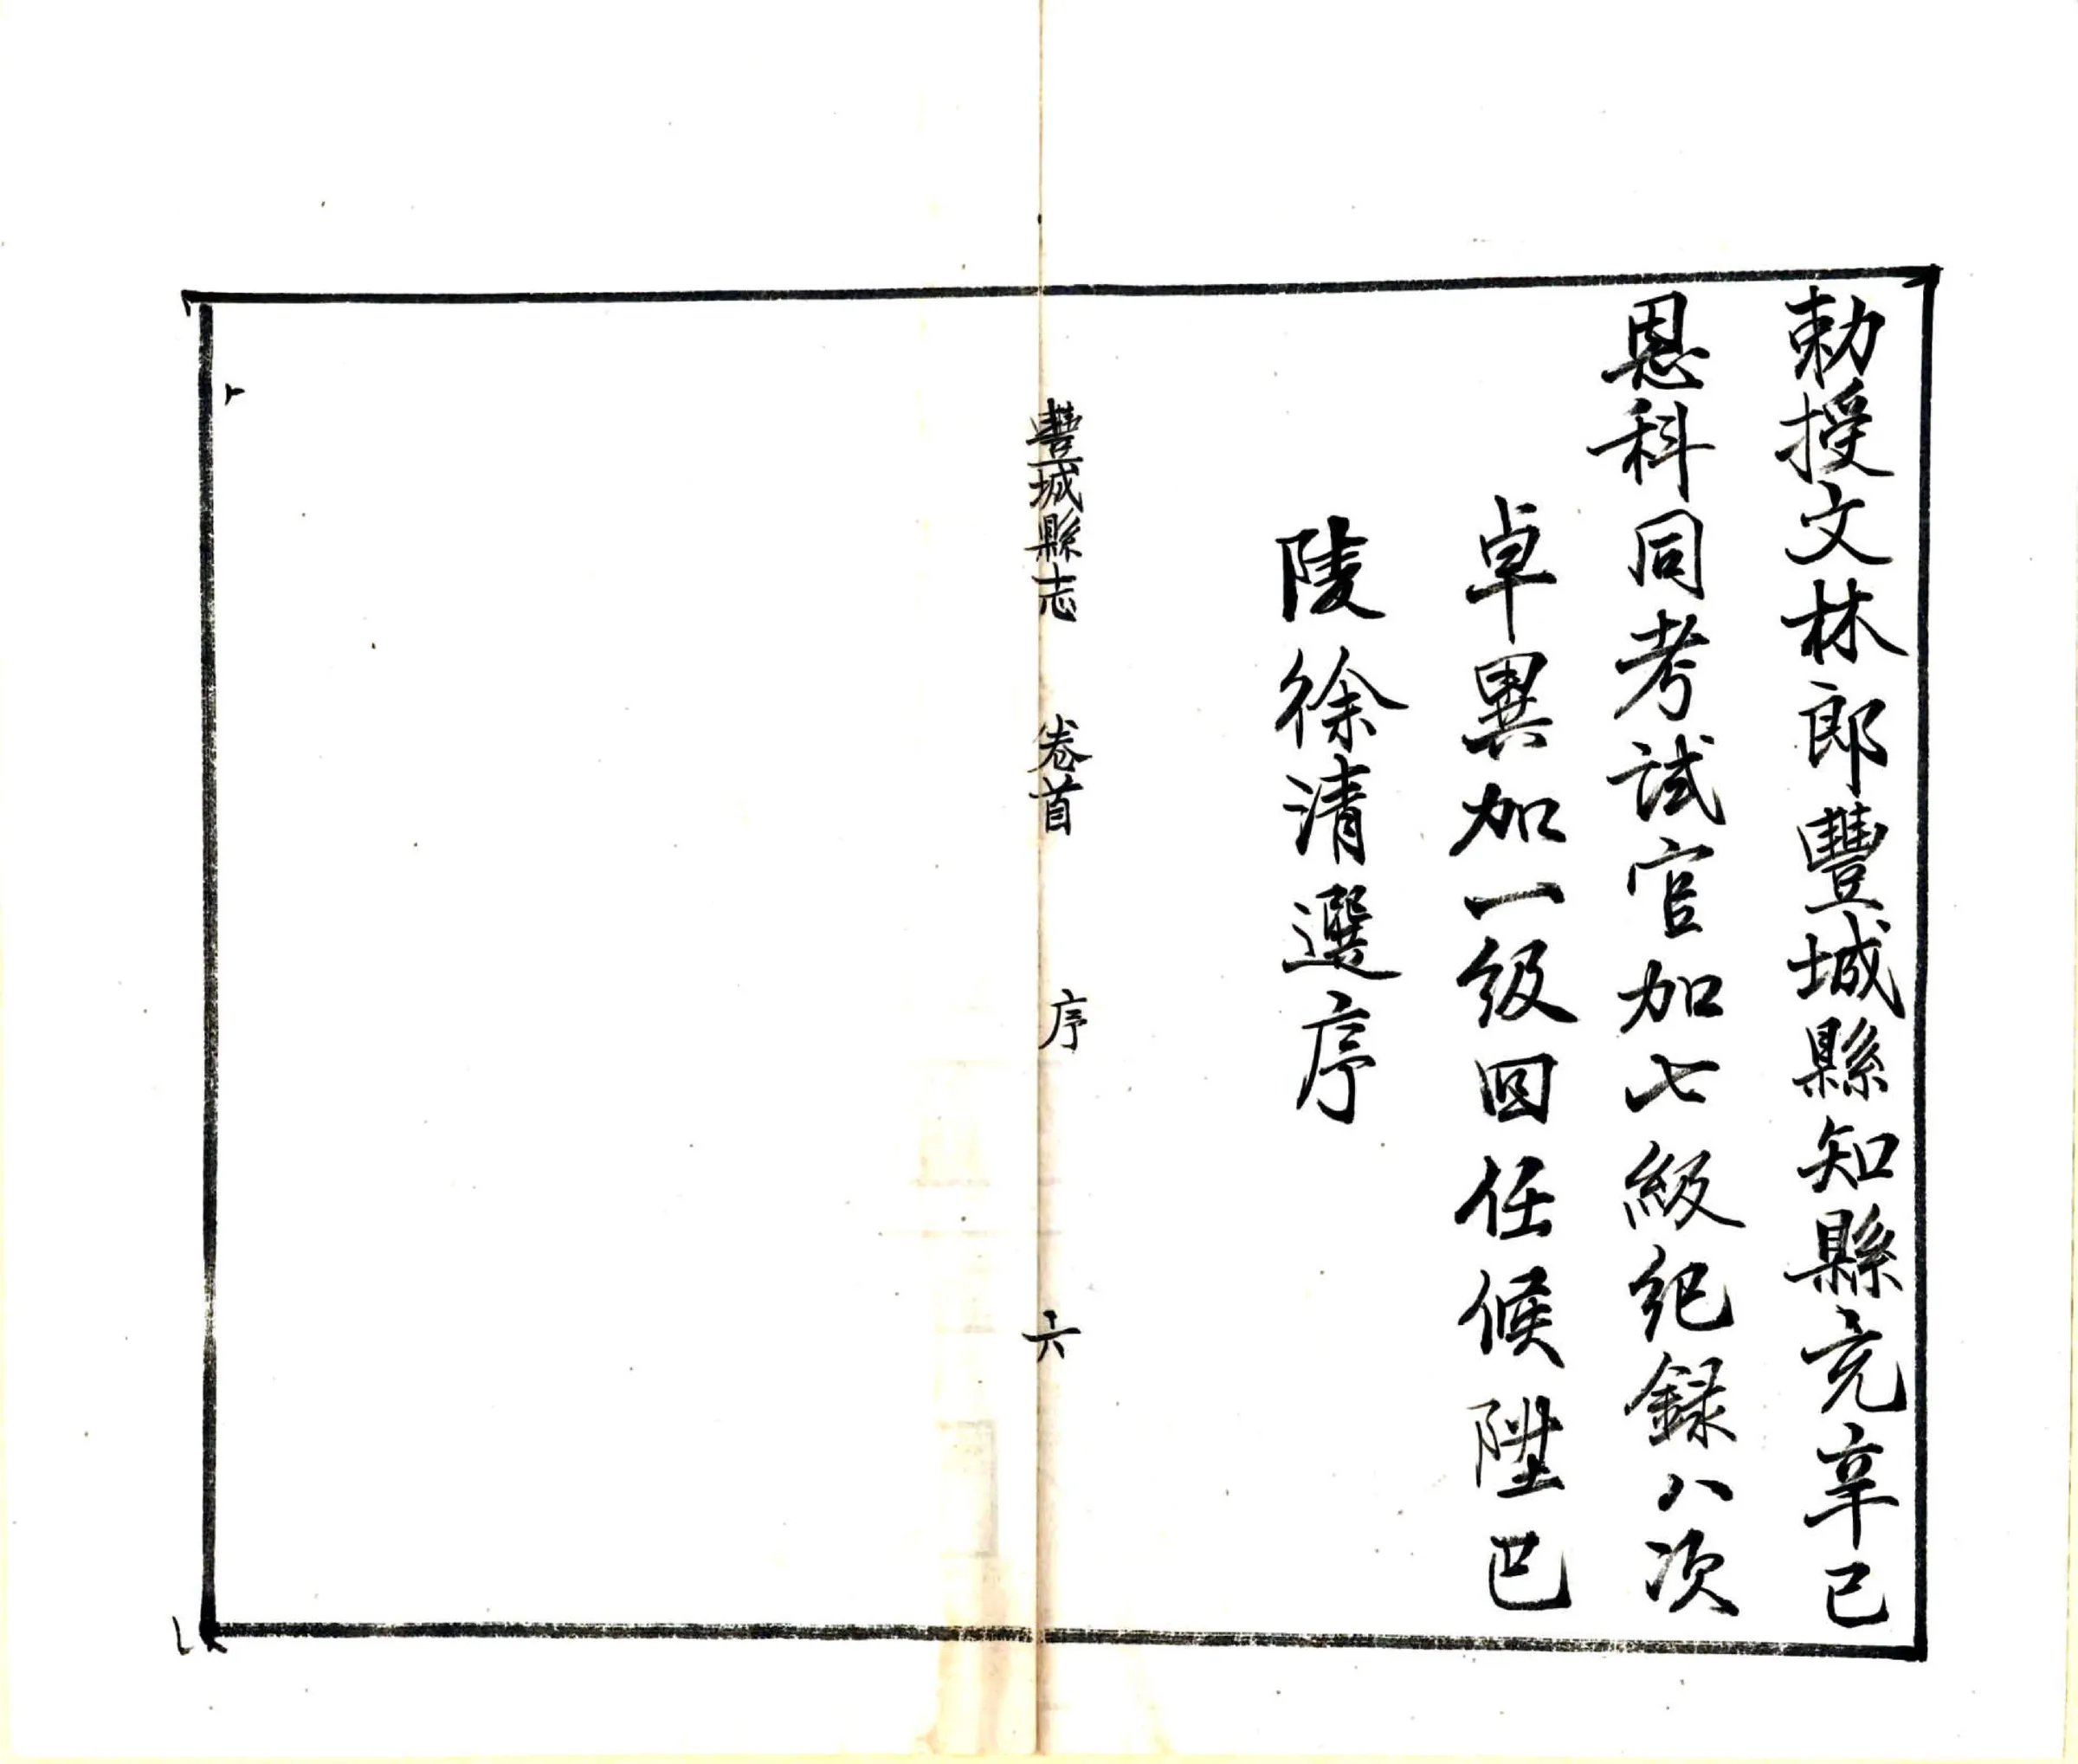 勅授文林郎豐城縣知縣充辛巳
恩科同考試官加七級紀録八次
卓異加一級回任候陞巴
陵徐清選序
豐城縣志　卷首　序　六